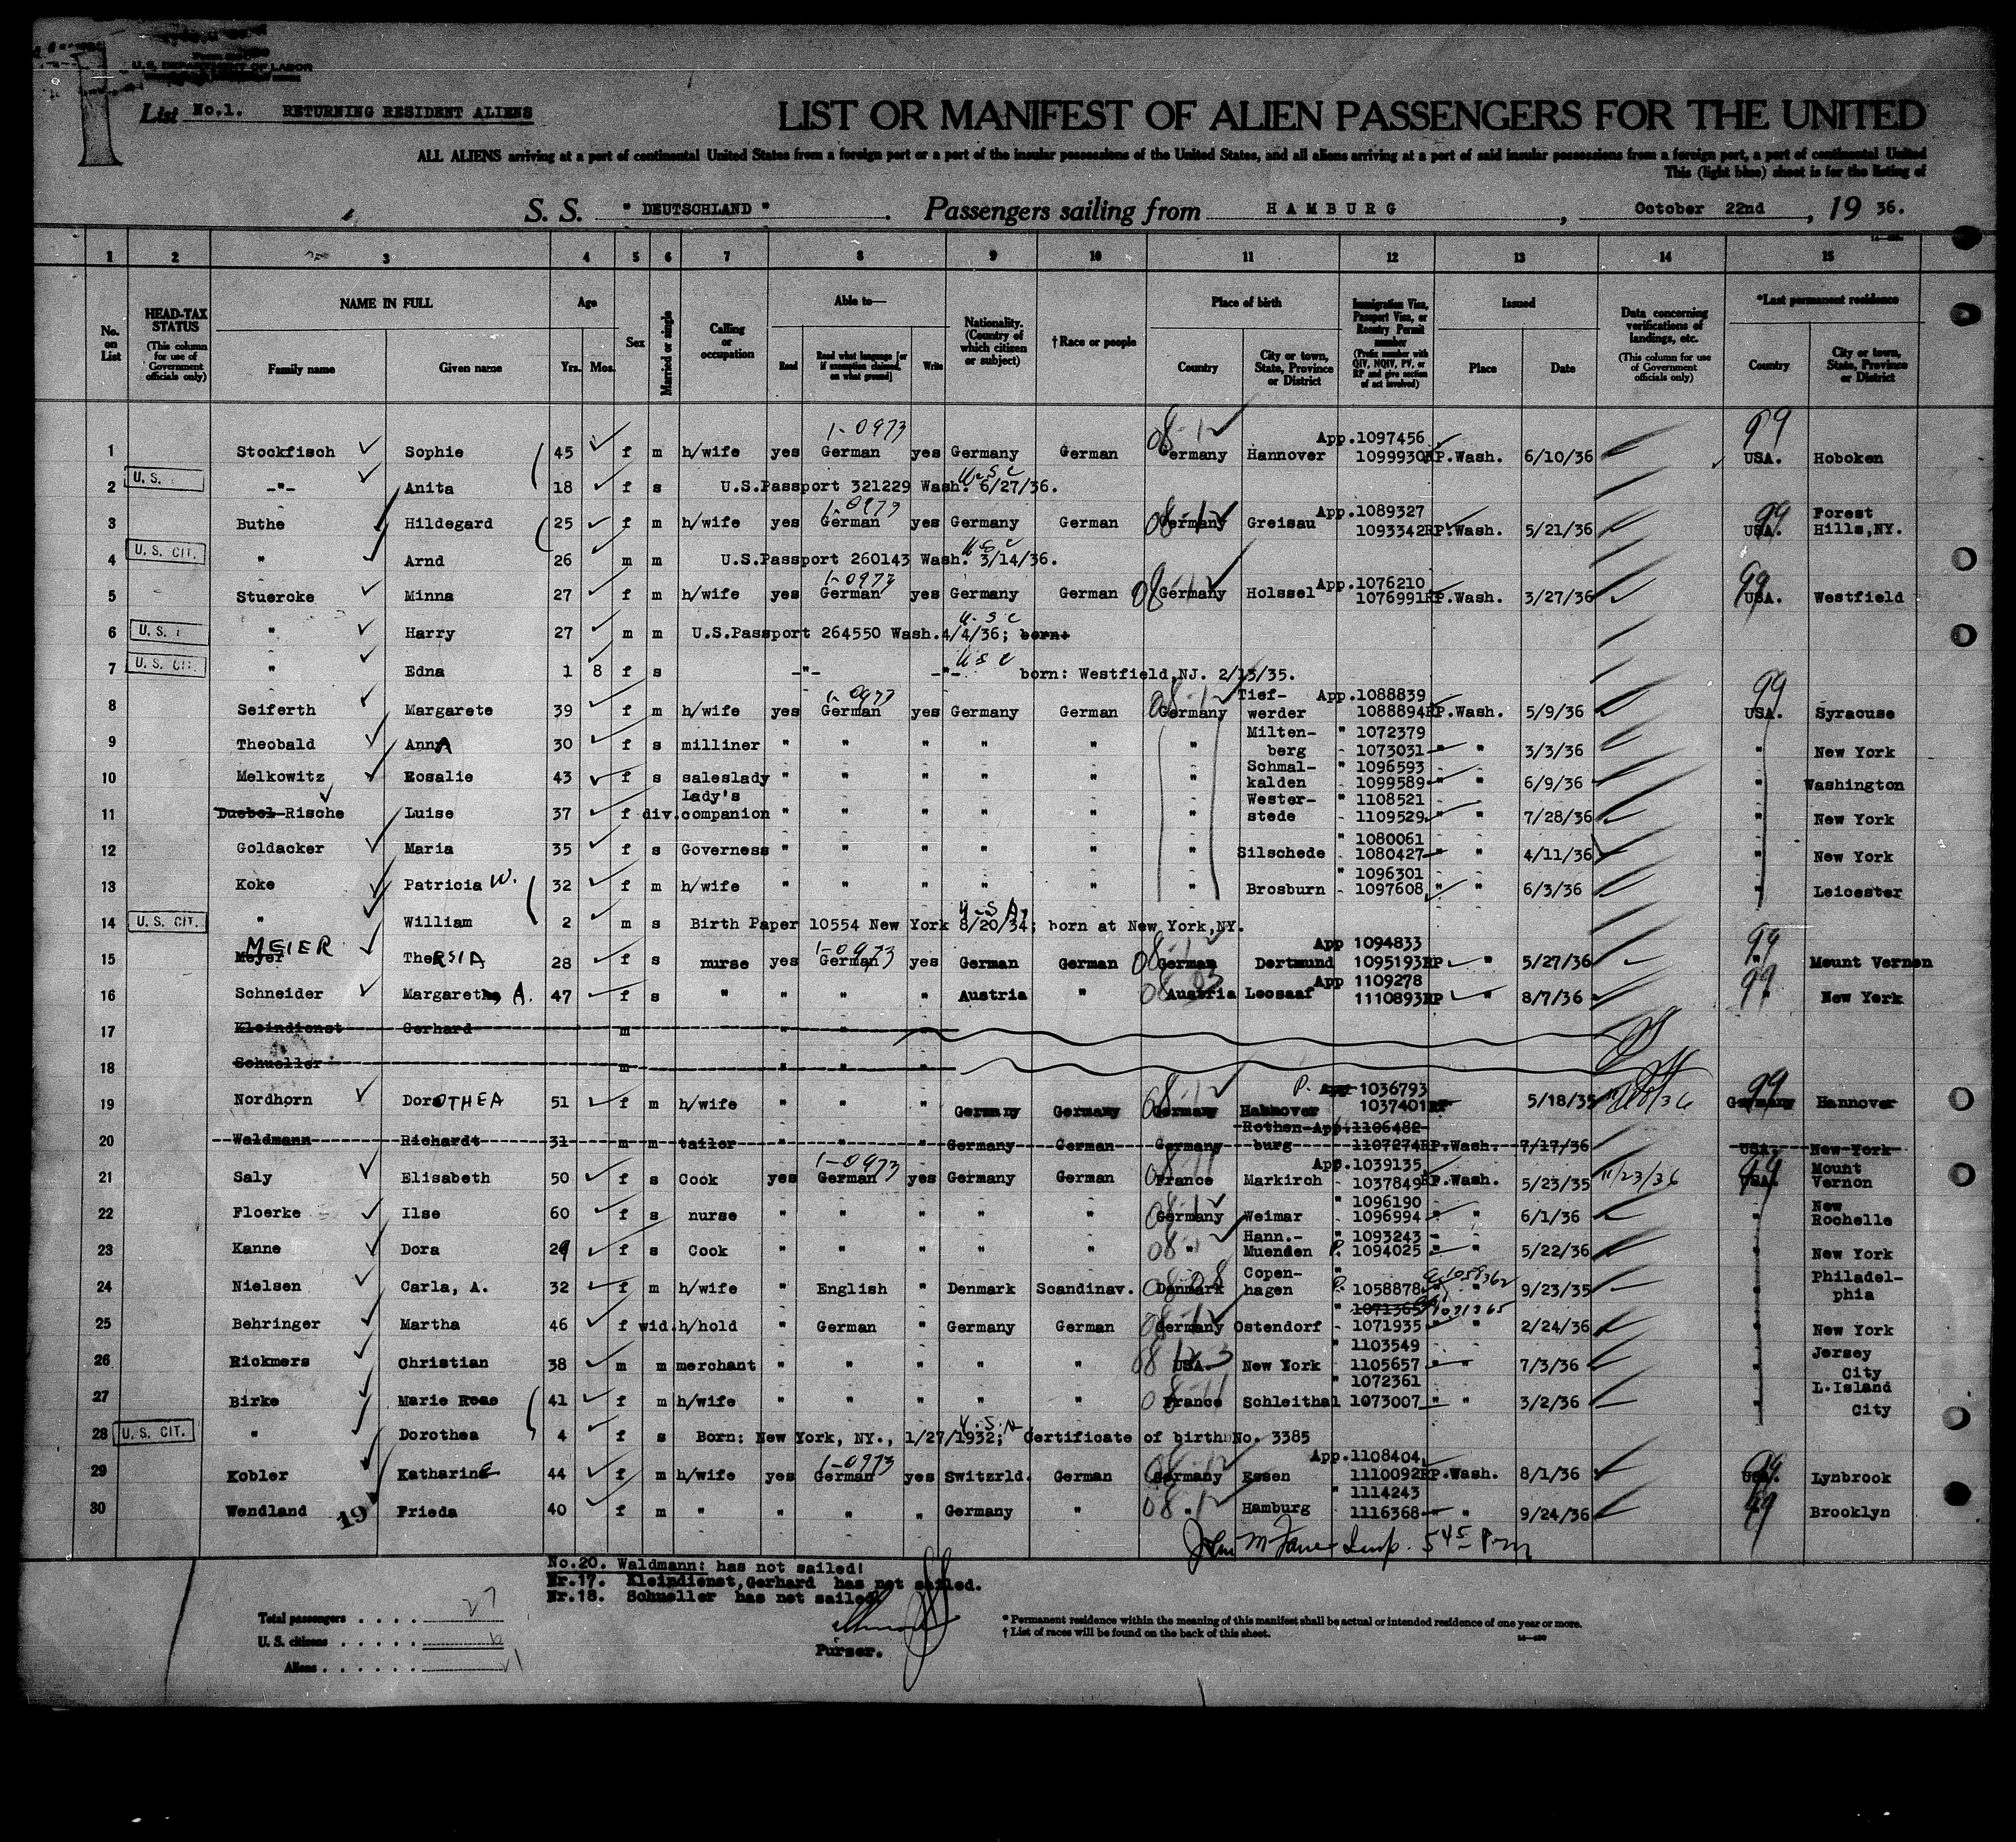 U.S. DEPARTMENT OF LABOR
List No.1. RETURNING RESIDENT ALIENS
LIST OR MANIFEST OF ALIEN PASSENGERS FOR THE UNITED
ALL ALIENS arriving at a port of continental United States from a foreign port or a port of the insular possessions of the United States, and all aliens arriving at a port of said insular possessions from a foreign port, a port of continental United
This (light blue) sheet is for the listing of
S. S. " DEUTSCHLAND " . Passengers sailing from HAMBURG , October 22nd , 19 36.
1 2 3 4 5 6 7 8 9 10 11 12 13 14 15
No. on List
HEAD-TAX STATUS (This column for use of Government officials only)
NAME IN FULL Family name Given name
Age Yrs. Mos.
Sex
Married or single
Calling or occupation
Able to— Read Read what language [or if exemption claimed, on what ground] Write
Nationality. (Country of which citizen or subject)
†Race or people
Place of birth Country City or town, State, Province or District
Immigration Visa, Passport Visa, or Reentry Permit number (Prefix number with QIV, NQIV, PV, or RP and give section of act involved)
Issued Place Date
Data concerning verifications of landings, etc. (This column for use of Government officials only)
*Last permanent residence Country City or town, State, Province or District
1-0973 08-12 99
1 Stockfisch Sophie 45 f m h/wife yes German yes Germany German Germany Hannover App.1097456 1099930RP.Wash. 6/10/36 USA. Hoboken
2 U. S. -"- Anita 18 f s U.S.Passport 321229 Wash. 6/27/36. U S C
1-0973
3 Buthe Hildegard 25 f m h/wife yes German yes Germany German 08-12 Germany Greisau App.1089327 1093342RP.Wash. 5/21/36 99 USA. Forest Hills,NY.
4 U. S. CIT. " Arnd 26 m m U.S.Passport 260143 Wash. 3/14/36. U S C
1-0973
5 Stuercke Minna 27 f m h/wife yes German yes Germany German 08-12 Germany Holssel App.1076210 1076991RP.Wash. 3/27/36 99 USA. Westfield
6 U. S. " Harry 27 m m U.S.Passport 264550 Wash.4/4/36; born: U. S C
7 U. S. CIT. " Edna 1 8 f s -"- -"- U S C born: Westfield,NJ. 2/13/35.
1-0973
8 Seiferth Margarete 39 f m h/wife yes German yes Germany German 08-12 Germany Tief-werder App.1088839 1088894RP.Wash. 5/9/36 99 USA. Syracuse
9 Theobald AnnA 30 f s milliner " " " " " " Milten-berg " 1072379 1073031 " " 3/3/36 " New York
10 Melkowitz Rosalie 43 f s saleslady " " " " " " Schmal-kalden " 1096593 1099589 " " 6/9/36 " Washington
11 Duebel-Rische Luise 37 f div. Lady's companion " " " " " " Wester-stede " 1108521 1109529 " " 7/28/36 " New York
12 Goldacker Maria 35 f s Governess " " " " " " Silschede " 1080061 1080427 " " 4/11/36 " New York
13 Koke Patricia W. 32 f m h/wife " " " " " " Brosburn " 1096301 1097608 " " 6/3/36 " Leicester
14 U. S. CIT. " William 2 m s Birth Paper 10554 New York 8/20/34; born at New York,NY.
15 Meyer MEIER TheRSIA 28 f s nurse yes German 1-0973 yes German German 08-12 German Dortmund App 1094833 1095193RP " 5/27/36 99 " Mount Vernon
16 Schneider Margarethe A. 47 f s " " " " Austria " 08 03 Austria Leosaaf App 1109278 1110893RP " 8/7/36 99 " New York
17 Kleindienst Gerhard m " " "
18 Schueller m " " "
19 Nordhorn DorOTHEA 51 f m h/wife " " " Germany Germany 08-12 Germany Hannover P. App 1036793 1037401RP 5/18/35 99 Germany Hannover
20 Waldmann Richardt 31 m m tailor " " " Germany German Germany Rothen-burg App.1106482 1107274RP.Wash. 7/17/36 USA. New York
21 Saly Elisabeth 50 f s Cook yes German 1-0973 yes Germany German 08-11 France Markirch App.1039135 1037849RP.Wash. 5/23/35 11/23/36 99 USA. Mount Vernon
22 Floerke Ilse 60 f s nurse " " " " " 08-12 Germany Weimar " 1096190 1096994 " " 6/1/36 " New Rochelle
23 Kanne Dora 29 f s Cook " " " " " 08 " Hann.-Muenden " 1093243 P. 1094025 " " 5/22/36 " New York
24 Nielsen Carla, A. 32 f m h/wife " English " Denmark Scandinav. 08-08 Denmark Copen-hagen " P. 1058878 1058362 " 9/23/35 " Philadel-phia
25 Behringer Martha 46 f wid. h/hold " German " Germany German 08-12 Germany Ostendorf " 1071365 1071365 1071935 " " 2/24/36 " New York
26 Rickmers Christian 38 m m merchant " " " " " 08 USA. New York " 1103549 1105657 " " 7/3/36 " Jersey City
27 Birke Marie Rose 41 f m h/wife " " " " " 08-11 France Schleithal " 1072361 1073007 " " 3/2/36 " L.Island City
28 U. S. CIT. " Dorothea 4 f s Born: New York, NY., 1/27/1932; Certificate of birth No. 3385
29 Kobler KatharinE 44 f m h/wife yes German 1-0973 yes Switzrld. German 08-12 Germany Essen App.1108404 1110092RP.Wash. 8/1/36 99 USA. Lynbrook
30 Wendland Frieda 40 f m " " " " Germany " 08 " Hamburg " 1114243 1116368 " " 9/24/36 99 Brooklyn
19
5 45 P m
No.20. Waldmann: has not sailed!
Nr.17. Kleindienst,Gerhard has not sailed.
Nr.18. Schueller has not sailed.
Total passengers . . . . 27
U. S. citizens . . . . . 6
Aliens . . . . . . 21
Purser.
* Permanent residence within the meaning of this manifest shall be actual or intended residence of one year or more.
† List of races will be found on the back of this sheet.